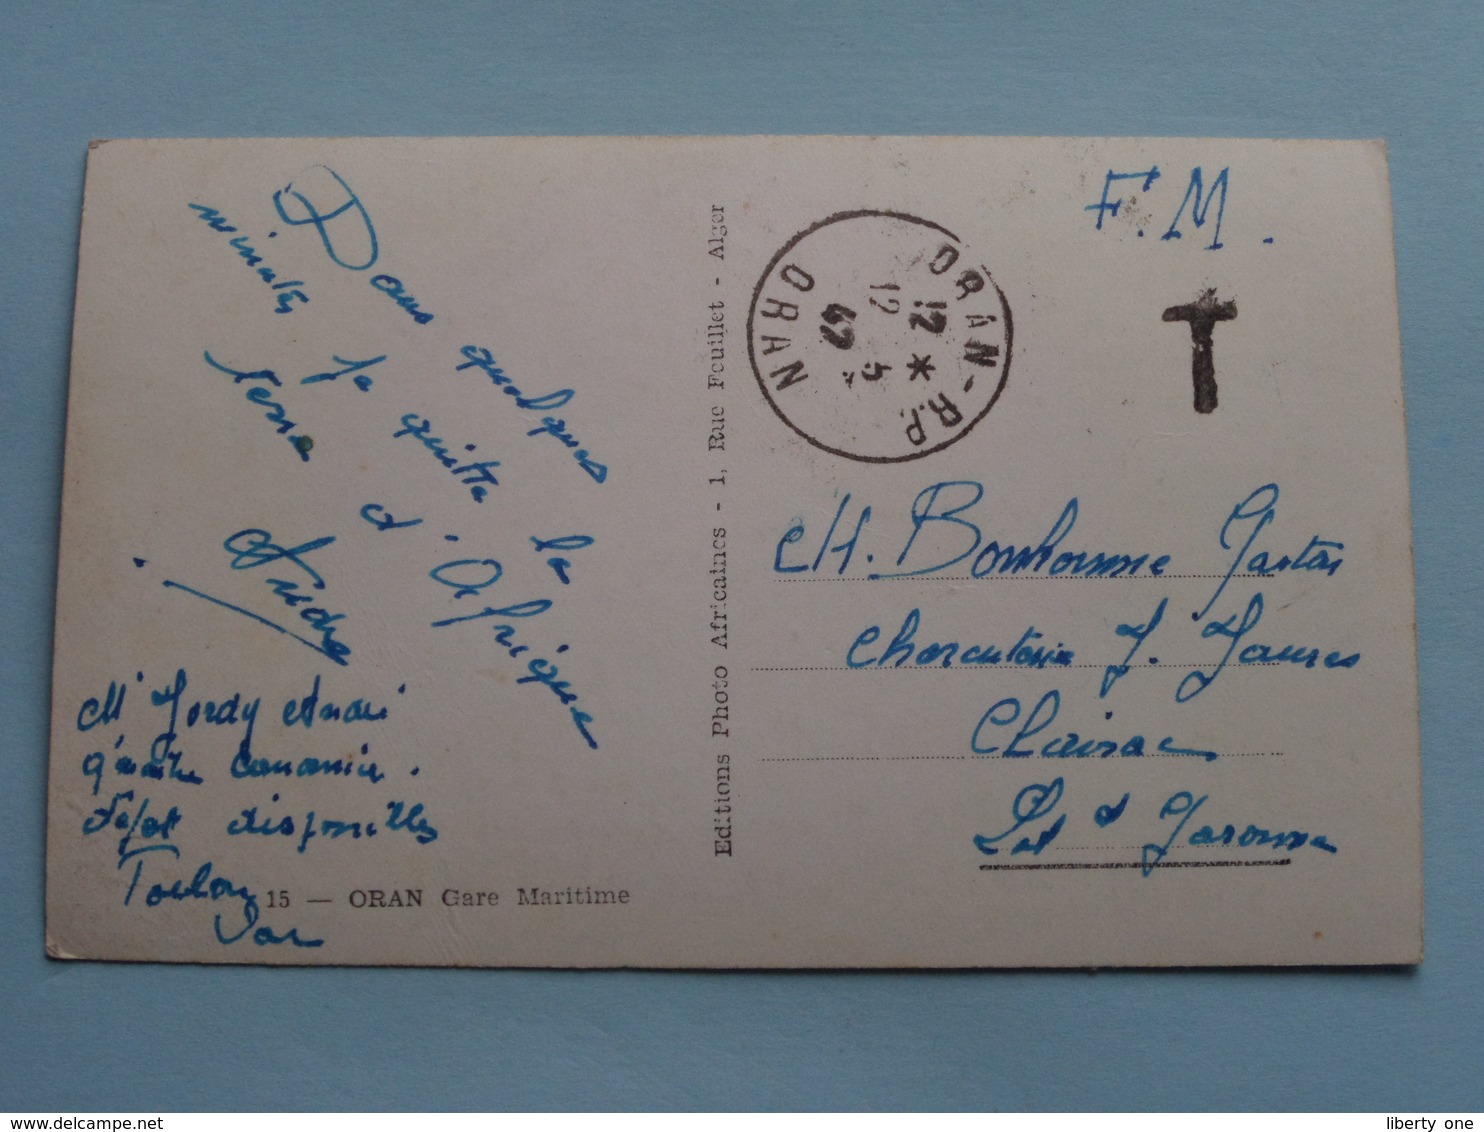 Dans quelques
minutes je quitte la
terre d'Afrique
André
Mr Jordy André
q. maître canonnier.
dépot disponibles
Toulon
Var
15 — ORAN Gare Maritime
Editions Photo Africaines - 1, Rue Feuillet - Alger
ORAN - R.P.
12 *
12 5
ORAN
F.M.
T
M. Bonhomme Gaston
Charcuterie J. Jaures
Clairac
Lot & Garonne
liberty one